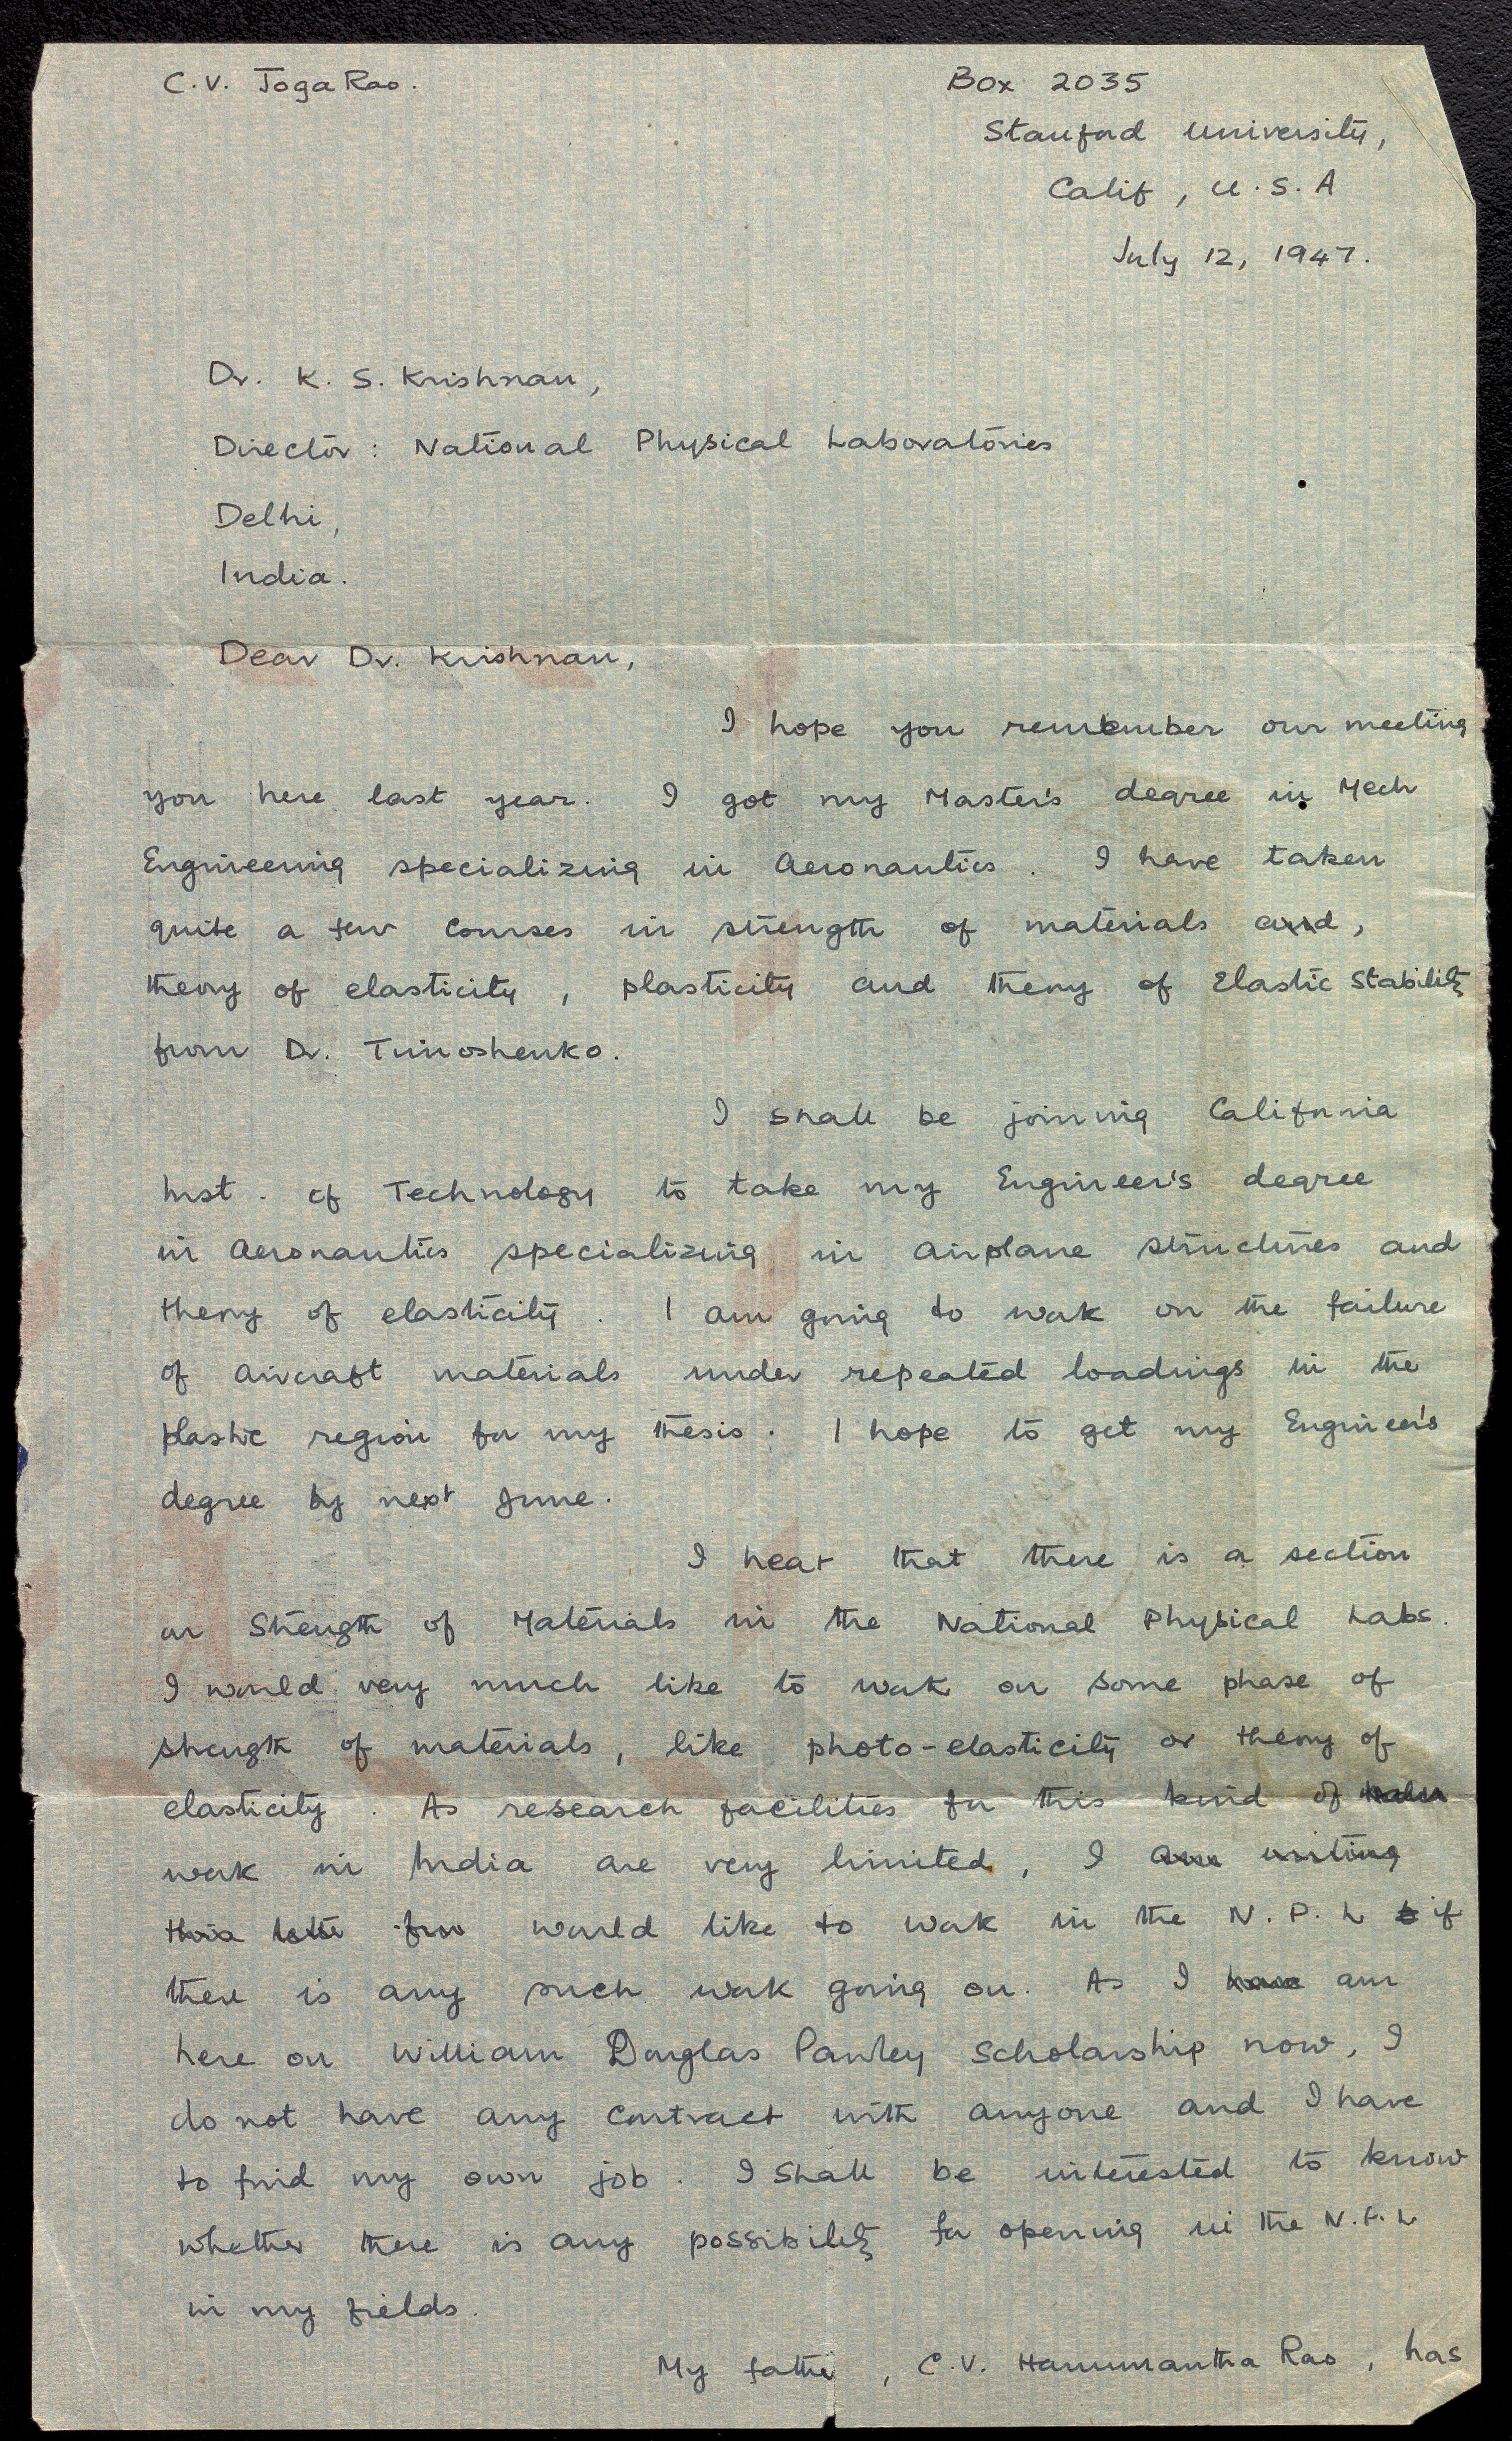 C.V. Joga Rao.
Box 2035
Stanford University,
Calif, U.S.A
July 12, 1947.
Dr. K. S. Krishnan,
Director: National Physical Laboratories
Delhi,
India.
Dear Dr. Krishnan,
I hope you remember our meeting
you here last year. I got my Master's degree in Mech
Engineering specializing in Aeronautics. I have taken
quite a few courses in strength of materials and,
theory of elasticity, plasticity and theory of Elastic Stability
from Dr. Timoshenko.
I shall be joining California
Inst. of Technology to take my Engineer's degree
in Aeronautics specializing in airplane structures and
theory of elasticity. I am going to work on the failure
of aircraft materials under repeated loadings in the
plastic region for my thesis. I hope to get my Engineer's
degree by next June.
I hear that there is a section
on Strength of Materials in the National Physical Labs.
I would very much like to work on some phase of
strength of materials, like photo-elasticity or theory of
elasticity. As research facilities for this kind of
work in India are very limited, I am writing
this letter for would like to work in the N.P.L if
there is any such work going on. As I have am
here on William Douglas Pawley Scholarship now, I
do not have any contract with anyone and I have
to find my own job. I shall be interested to know
whether there is any possibility for opening in the N.P.L
in my fields.
My father, C.V. Hanumantha Rao, has